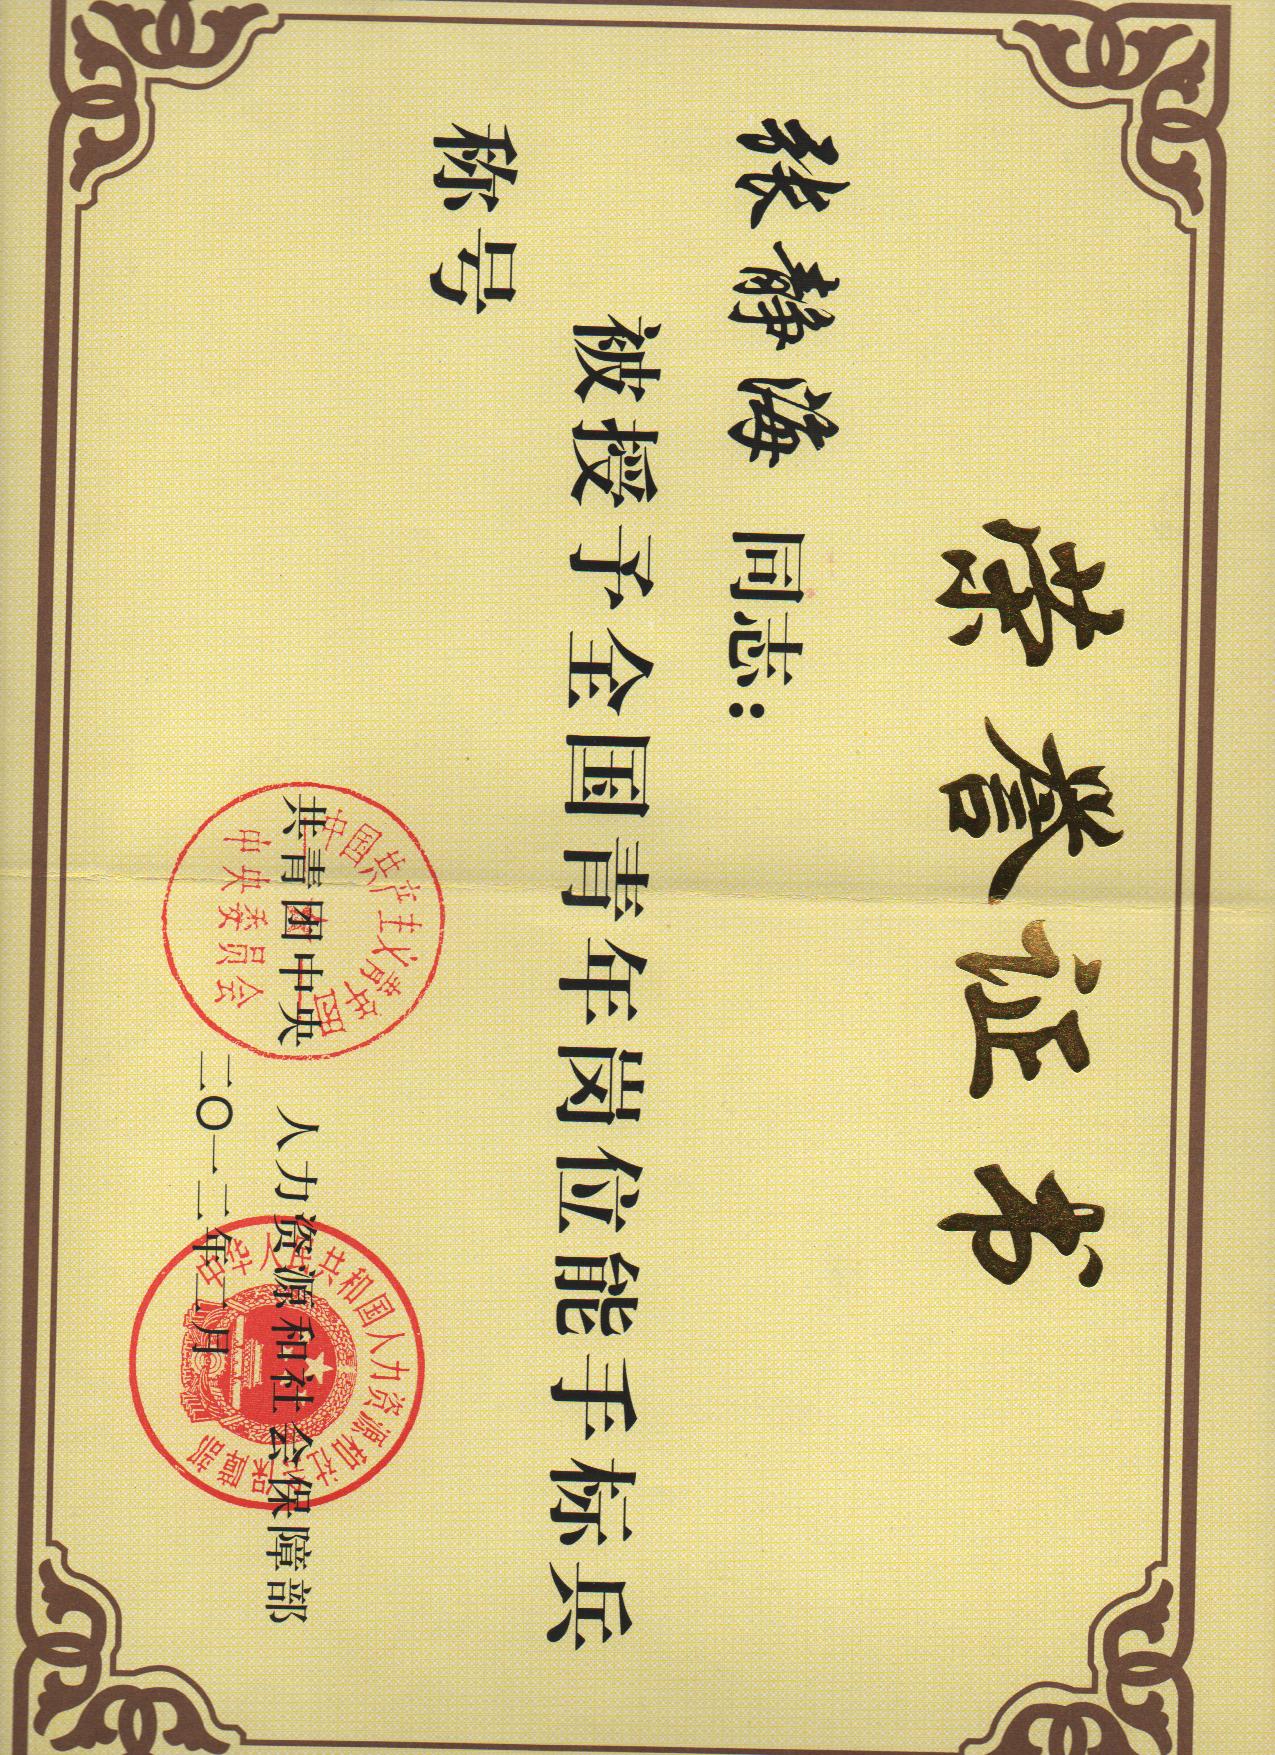 荣誉证书
张静海 同志：
被授予全国青年岗位能手标兵
称号
共青团中央 人力资源和社会保障部
二〇一二年二月
中国共产主义青年团
中央委员会
中华人民共和国人力资源和社会保障部